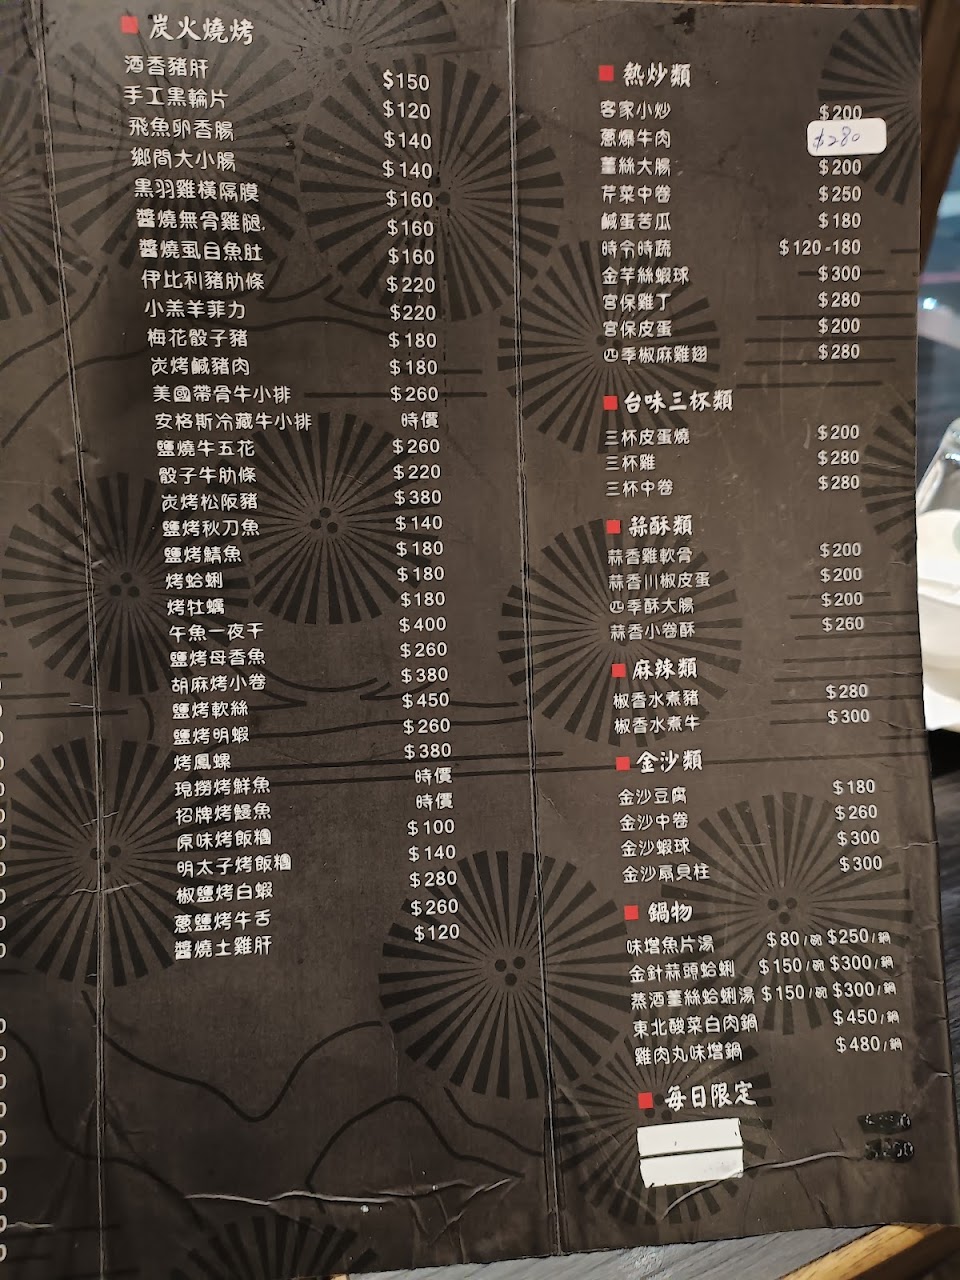 炭火燒烤
酒香豬肝 $150
手工黑輪片 $120
飛魚卵香腸 $140
鄉間大小腸 $140
黑羽雞橫隔膜 $160
醬燒無骨雞腿 $160
醬燒虱目魚肚 $160
伊比利豬肋條 $220
小羔羊菲力 $220
梅花骰子豬 $180
炭烤鹹豬肉 $180
美國帶骨牛小排 $260
安格斯冷藏牛小排 時價
鹽燒牛五花 $260
骰子牛肋條 $220
炭烤松阪豬 $380
鹽烤秋刀魚 $140
鹽烤鯖魚 $180
烤蛤蜊 $180
烤牡蠣 $180
午魚一夜干 $400
鹽烤母香魚 $260
胡麻烤小卷 $380
鹽烤軟絲 $450
鹽烤明蝦 $260
烤鳳螺 $380
現撈烤鮮魚 時價
招牌烤鰻魚 時價
原味烤飯糰 $100
明太子烤飯糰 $140
椒鹽烤白蝦 $280
蔥鹽烤牛舌 $260
醬燒土雞肝 $120
熱炒類
客家小炒 $200
蔥爆牛肉 $280
薑絲大腸 $200
芹菜中卷 $250
鹹蛋苦瓜 $180
時令時蔬 $120-180
金芊絲蝦球 $300
宮保雞丁 $280
宮保皮蛋 $200
四季椒麻雞翅 $280
台味三杯類
三杯皮蛋燒 $200
三杯雞 $280
三杯中卷 $280
蒜酥類
蒜香雞軟骨 $200
蒜香川椒皮蛋 $200
四季酥大腸 $200
蒜香小卷酥 $260
麻辣類
椒香水煮豬 $280
椒香水煮牛 $300
金沙類
金沙豆腐 $180
金沙中卷 $260
金沙蝦球 $300
金沙扇貝柱 $300
鍋物
味增魚片湯 $80/碗 $250/鍋
金針蒜頭蛤蜊 $150/碗 $300/鍋
蒸酒薑絲蛤蜊湯 $150/碗 $300/鍋
東北酸菜白肉鍋 $450/鍋
雞肉丸味增鍋 $480/鍋
每日限定